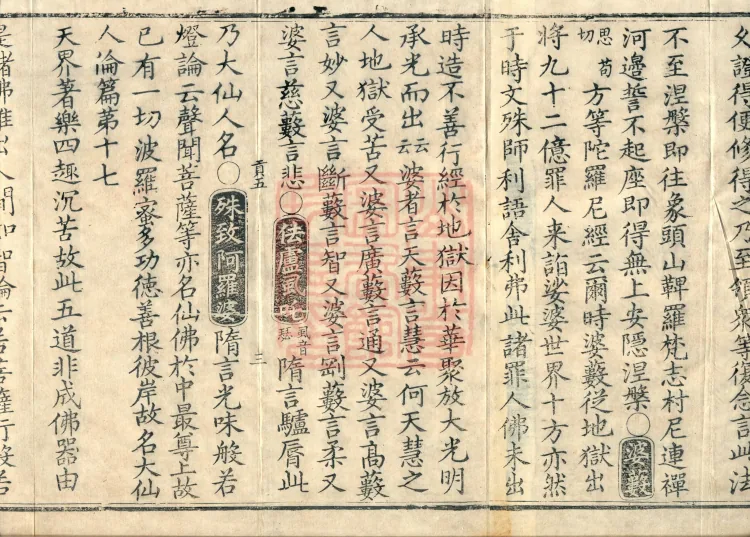 父證得便修得之乃至領衆等復念言此法
不至涅槃即往象頭山鞞羅梵志村尼連禪
河邊誓不起座即得無上安隱涅槃〇婆藪
思苟切
方等陀羅尼經云爾時婆藪從地獄出
將九十二億罪人来詣娑婆世界十方亦然
于時文殊師利語舍利弗此諸罪人佛未出
時造不善行經於地獄因於華聚放大光明
承光而出云云婆者言天藪言慧云何天慧之
人地獄受苦又婆言廣藪言通又婆言高藪
言妙又婆言斷藪言智又婆言剛藪言柔又
婆言慈藪言悲〇佉盧風吒
風音瑟
隋言驢脣此
貢五
三
乃大仙人名〇殊致阿羅婆隋言光味般若
燈論云聲聞菩薩等亦名仙佛於中最尊上故
已有一切波羅蜜多功徳善根彼岸故名大仙
人倫篇第十七
天界著樂四趣沉苦故此五道非成佛器由
是諸佛唯出人間如智論云若菩薩行般若